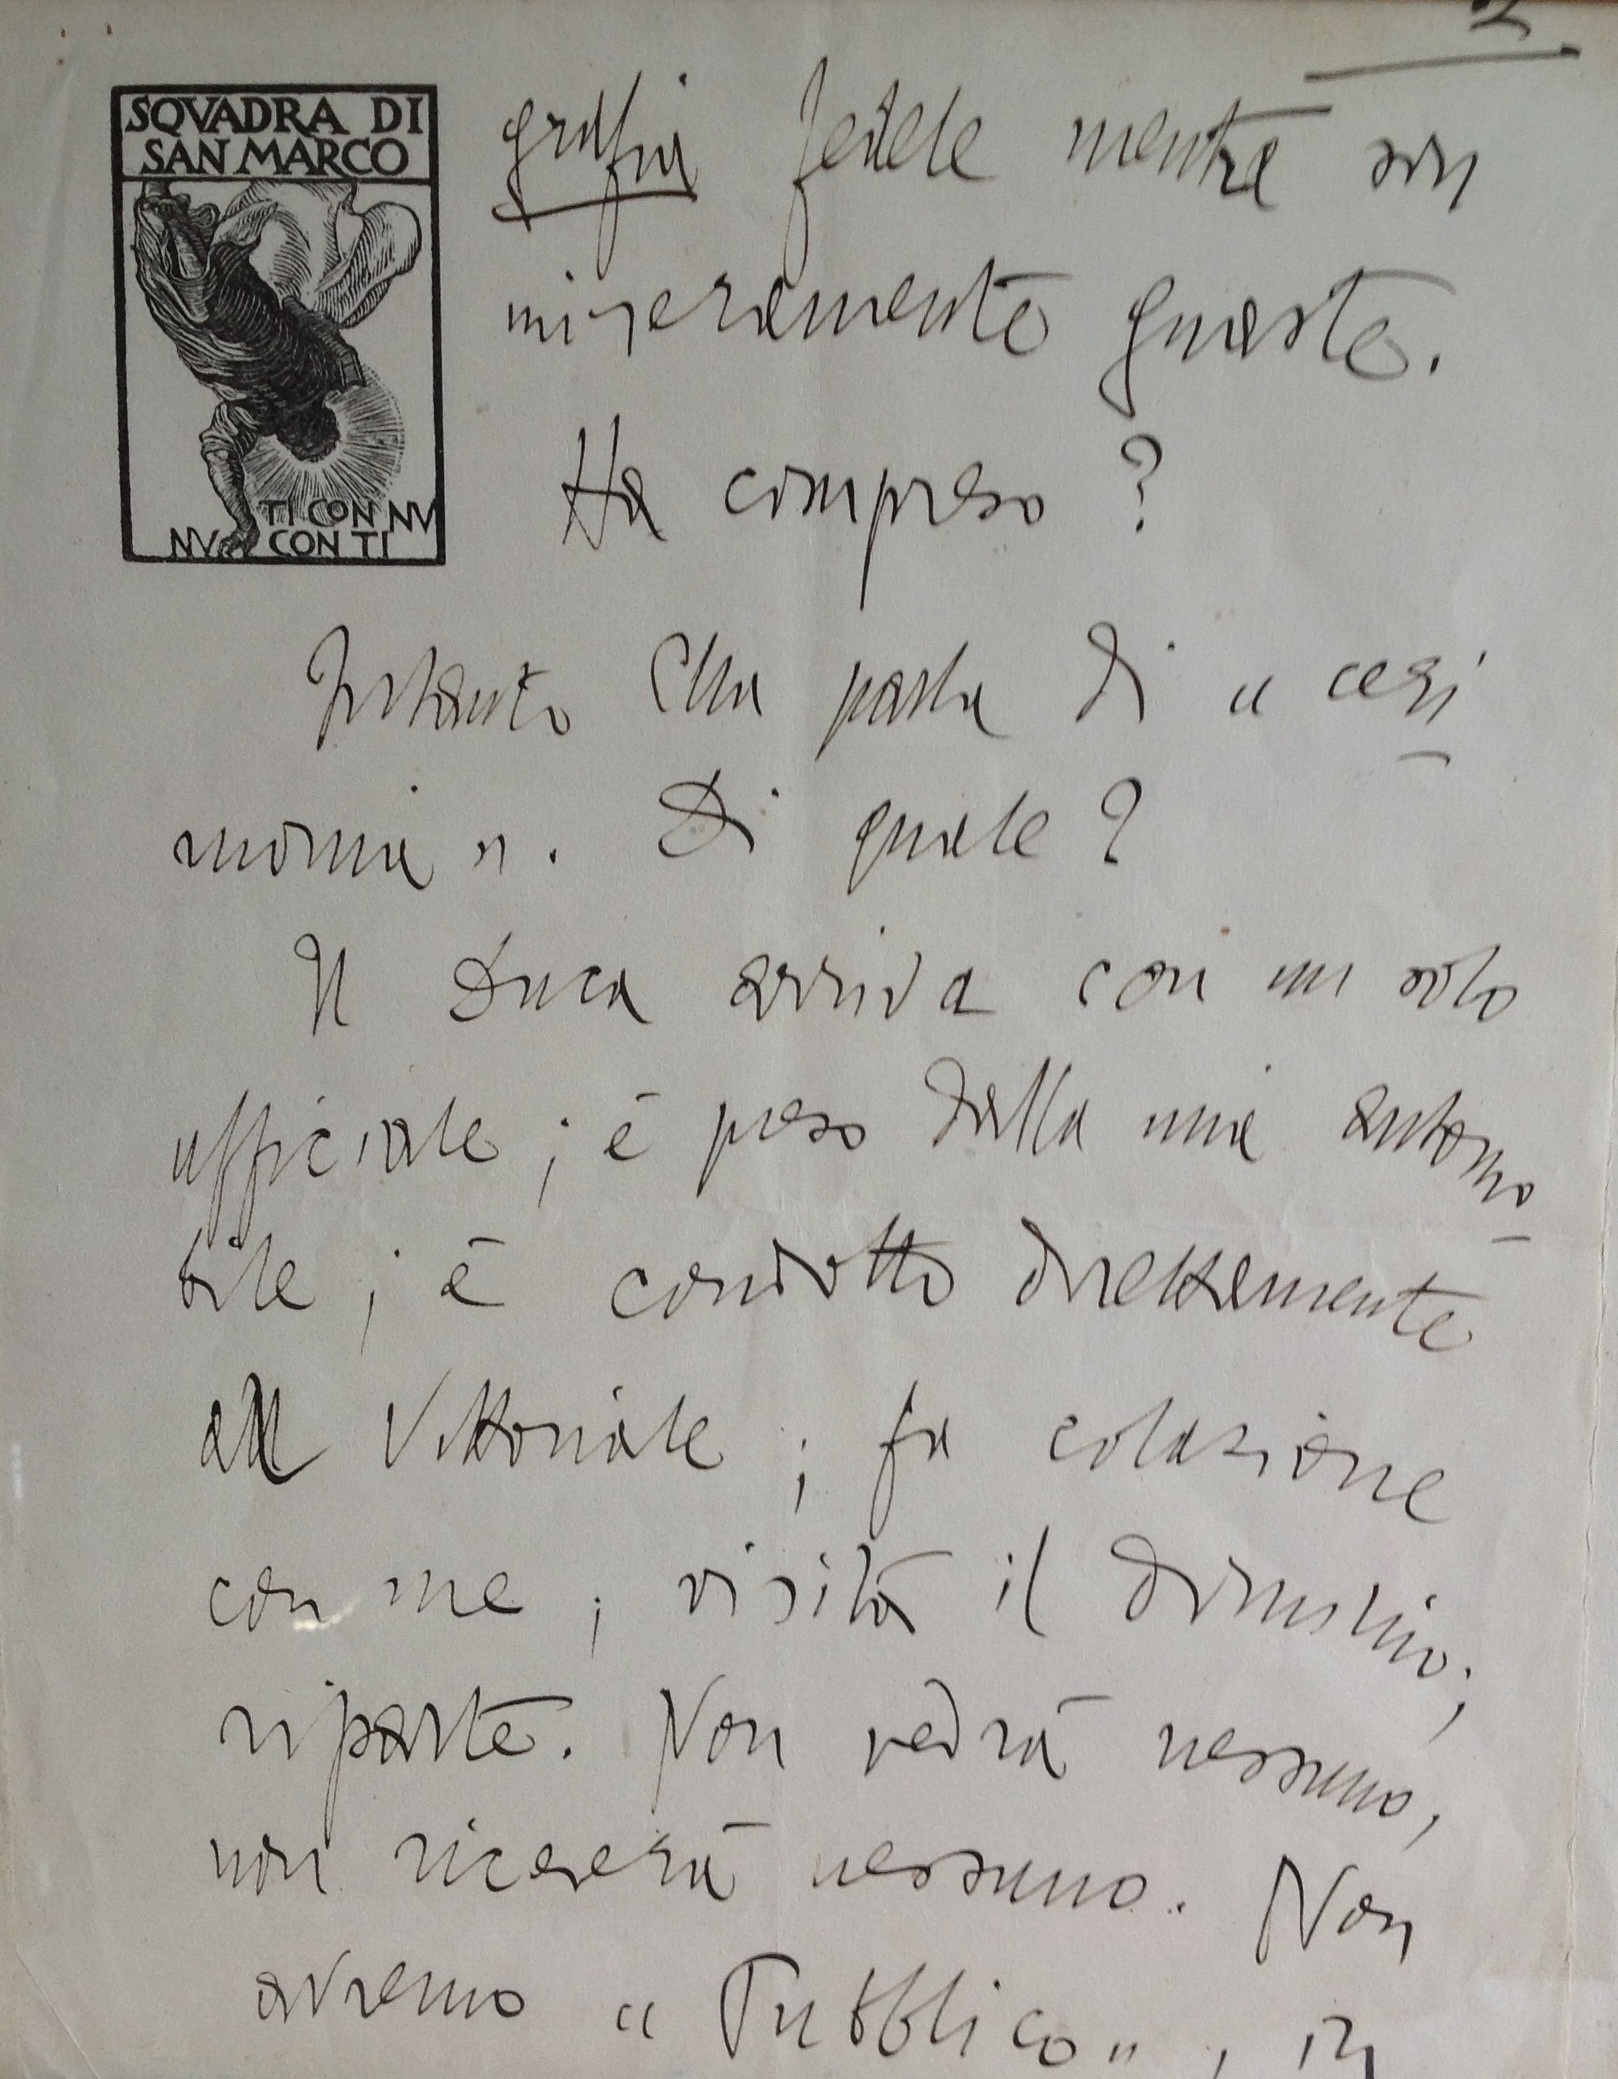 2
SQVADRA DI
SAN MARCO
TI CON NV
NV CON TI
grafia fedele mentre son
miseramente guaste.
Ha compreso ?
Intanto Ella parla di " ceri
monia ". Di quale ?
Il Duca arriva con un solo
ufficiale ; è preso dalla mia automo
bile ; è condotto direttamente
al Vittoriale ; fa colazione
con me ; visita il
riparte. Non vedrà nessuno,
non riceverà nessuno. Non
avremo " Pubblico " , in